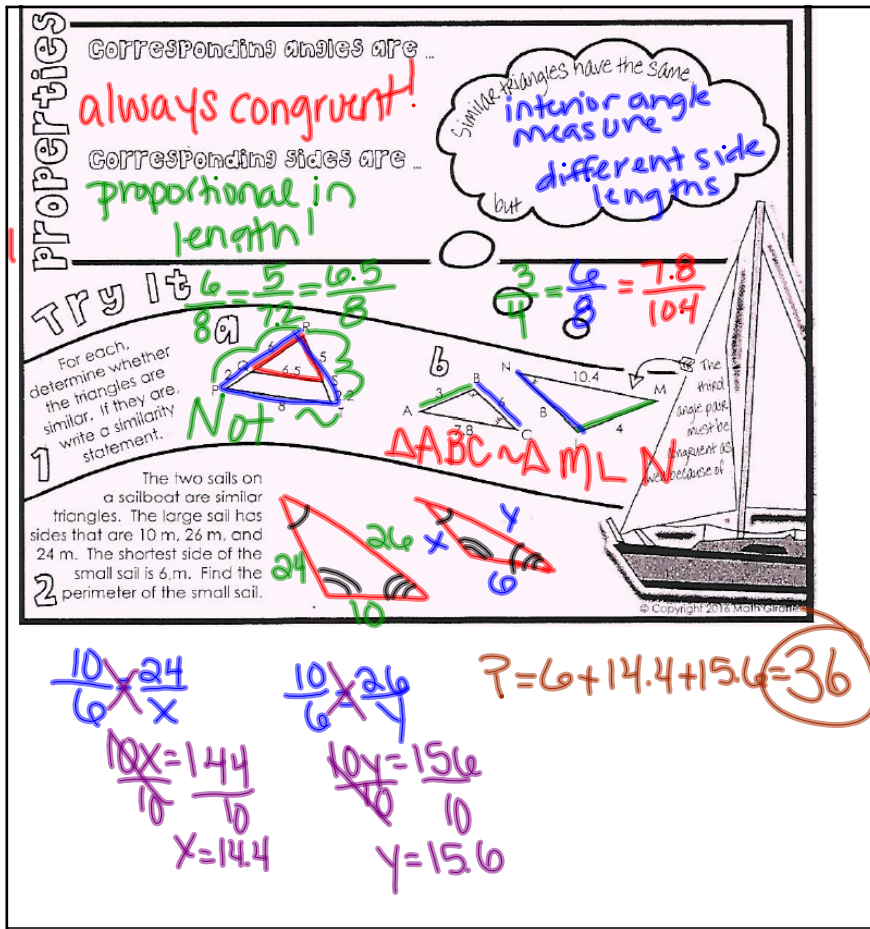 Properties
Corresponding angles are ...
always congruent!
Corresponding sides are ...
proportional in
length!
Similar triangles have the same...
interior angle
measure
but
different side
lengths
Try It
6/8 = 5/7.2 = 6.5/8
3/4 = 6/8 = 7.8/104
1
For each,
determine whether
the triangles are
similar. If they are,
write a similarity
statement.
a
R
6
5
Q
6.5
S
2
2.2
P
8
T
Not ~
b
B
3
6
A
7.8
C
N
10.4
M
8
L
4
△ABC ~ △MLN
The
third
angle pair
must be
congruent as
well because of
2
The two sails on
a sailboat are similar
triangles. The large sail has
sides that are 10 m, 26 m, and
24 m. The shortest side of the
small sail is 6 m. Find the
perimeter of the small sail.
24
26
10
x
y
6
© Copyright 2016 Math Giraffe
10/6 = 24/x
10x/10 = 144/10
x=14.4
10/6 = 26/y
10y/10 = 156/10
y=15.6
P=6+14.4+15.6=36